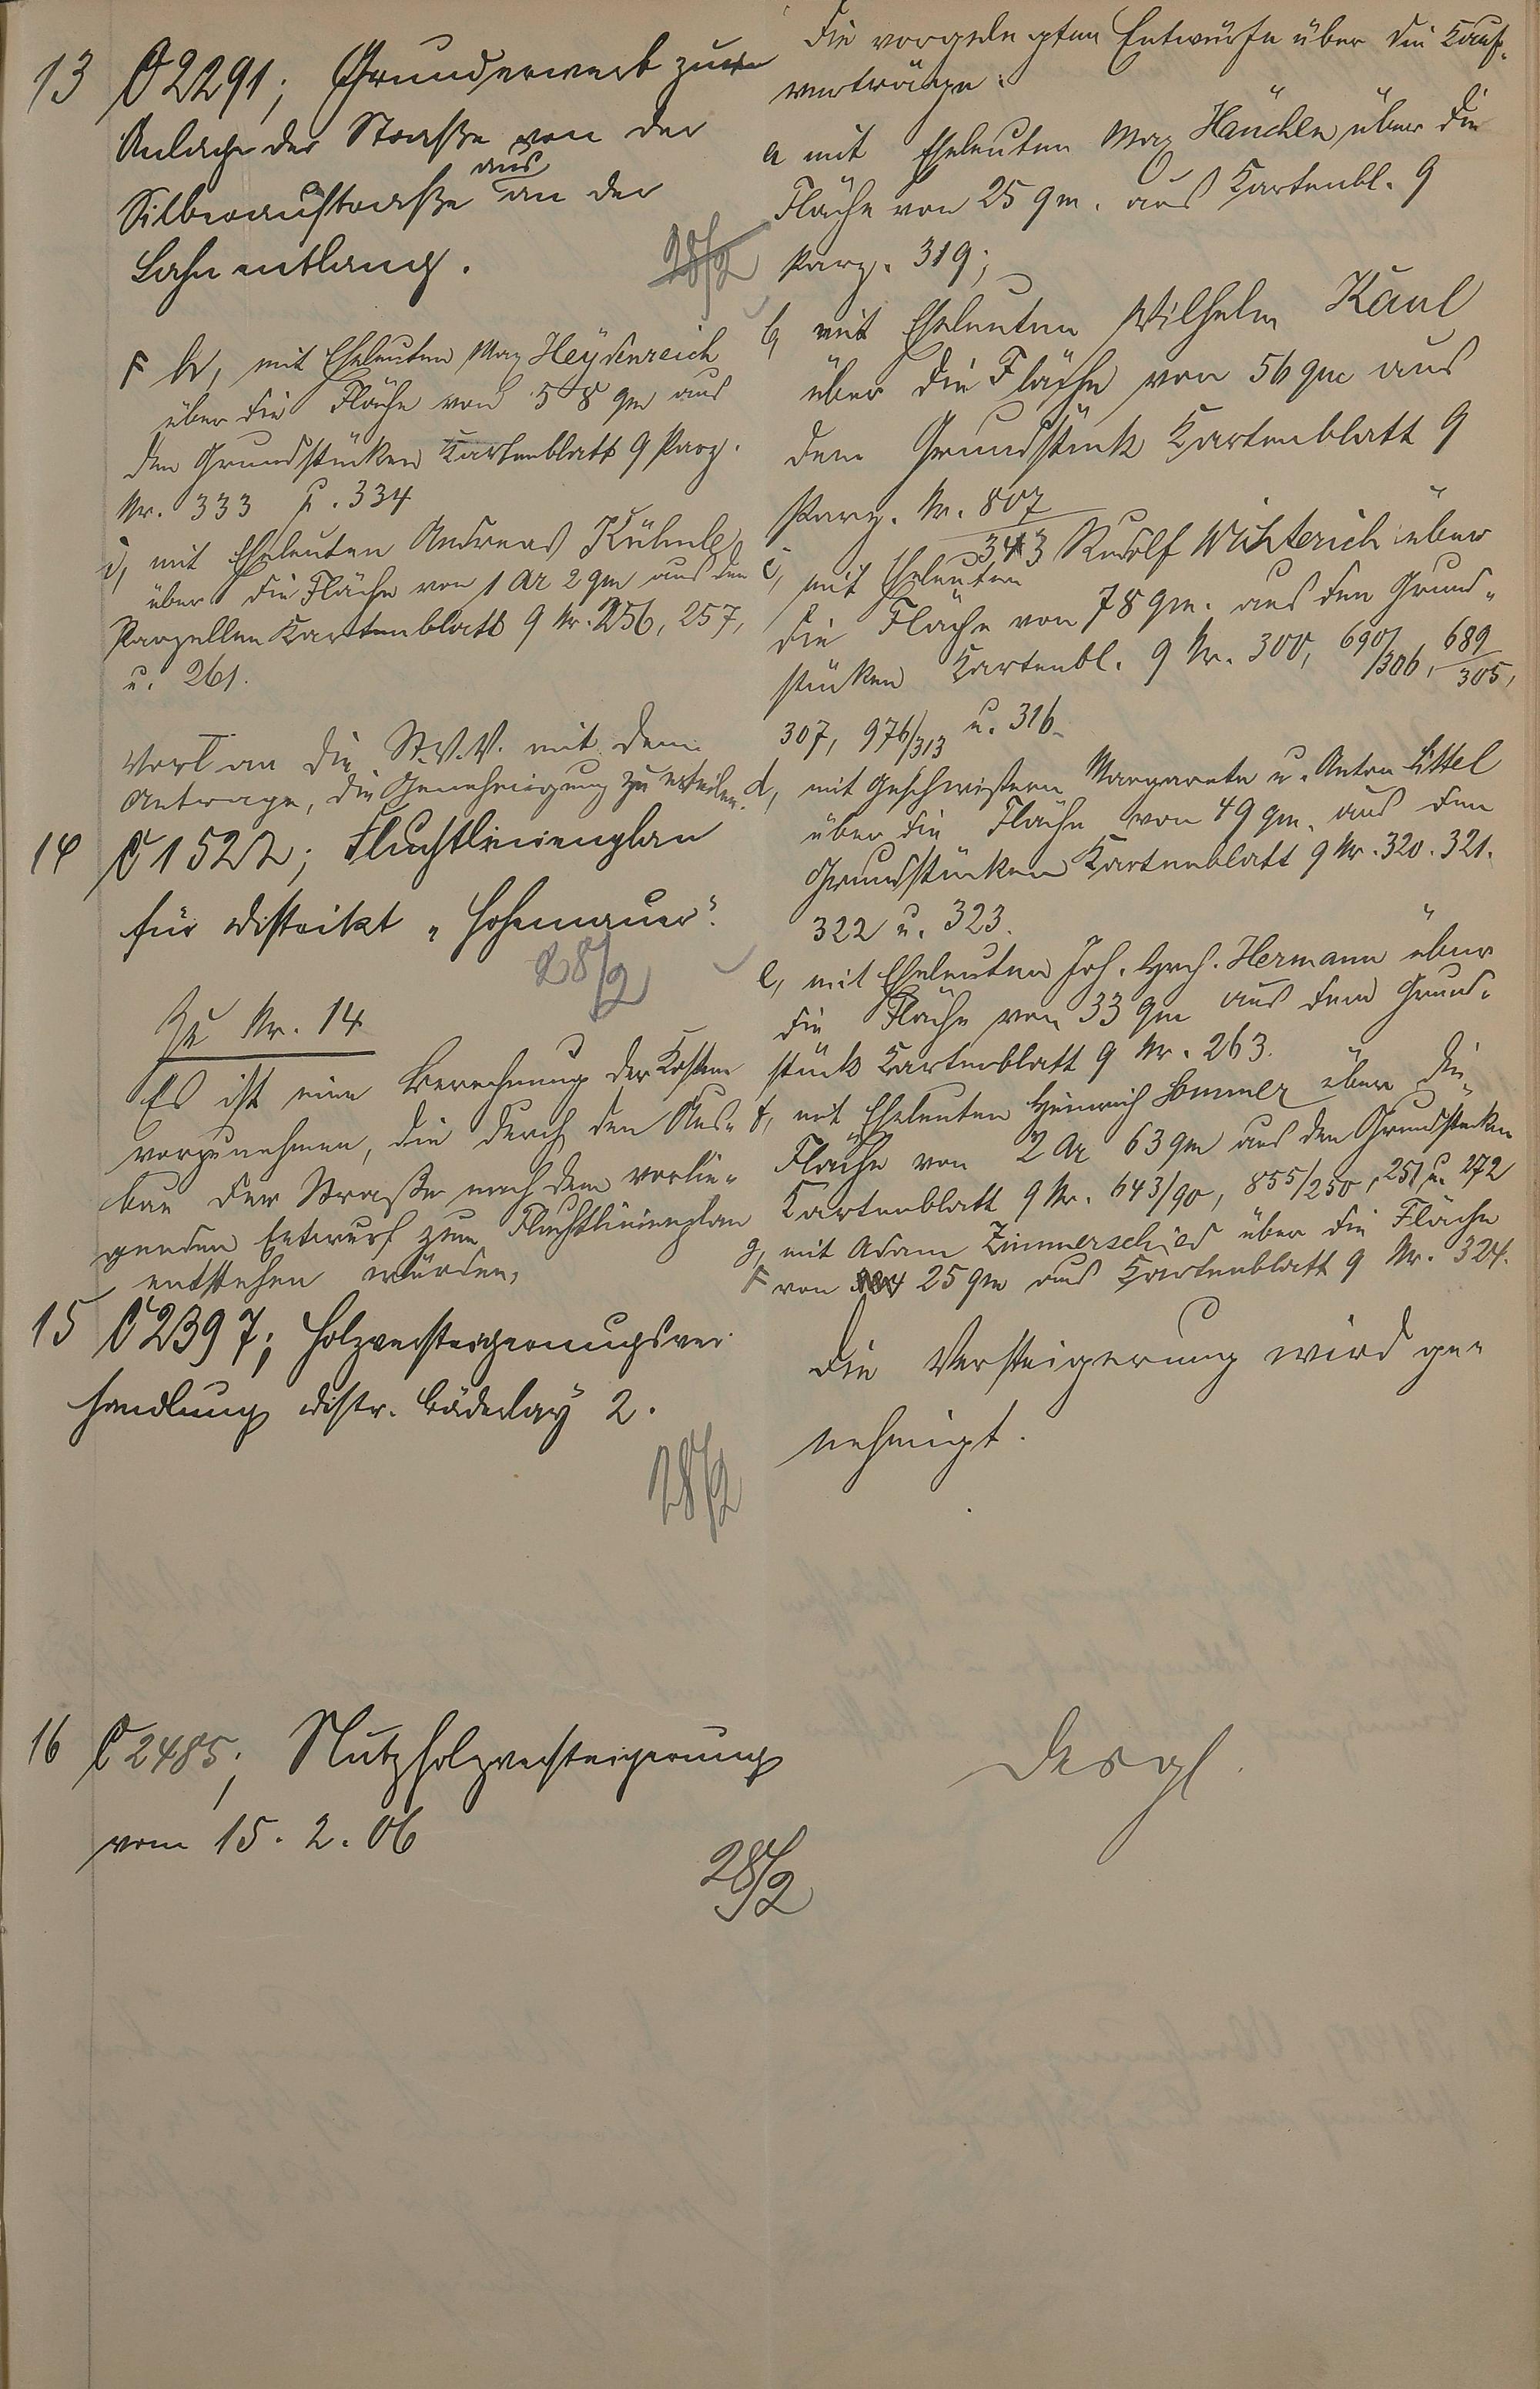 13 C 2291; Grunderwerb zur
Anlage der Straße von der
Silberaustraße aus an der
Lahn entlang.
28/2
Die vorgelegten Entwürfe über die Kauf-
verträge:
a mit Eheleuten Max Häuchen über die
Fläche von 25 qm. aus Kartenbl. 9
Parz. 319;
b, mit Eheleuten Wilhelm Kaul
über die Fläche von 56 qm aus
dem Grundstück Kartenblatt 9
Parz. Nr. 807/343
c, mit Eheleuten Rudolf Wichterich über
die Fläche von 78 qm. aus den Grund-
stücken Kartenbl. 9 Nr. 300, 690/306, 689/305,
307, 976/313 u. 316.
d, mit Geschwistern Margareta u. Anton Littel
über die Fläche von 49 qm. aus den
Grundstücken Kartenblatt 9 Nr. 320. 321.
322 u. 323.
e, mit Eheleuten Joh. Hrch. Hermann über
die Fläche von 33 qm aus dem Grund-
stück Kartenblatt 9 Nr. 263.
f, mit Eheleuten Heinrich Sommer über die
Fläche von 2 Ar 63 qm aus den Grundstücken
Kartenblatt 9 Nr. 643/90, 855/250, 251 u. 272
g, mit Adam Zimmerschied über die Fläche
F von 25 qm aus Kartenblatt 9 Nr. 324.
F h, mit Eheleuten Max Heydenreich
über die Fläche von 58 qm aus
den Grundstücken Kartenblatt 9 Parz.
Nr. 333 u. 334
i, mit Eheleuten Andreas Kühnle
über die Fläche von 1 Ar 2 qm aus den
Parzellen Kartenblatt 9 Nr. 256, 257,
u. 261.
Vorl. an die St.V.V. mit dem
Antrage, die Genehmigung zu erteilen.
14 C 1522; Fluchtlinienplan
für Distrikt „Hohemauer".
28/2
Zu Nr. 14
Es ist eine Berechnung der Kosten
vorzunehmen, die durch den Aus-
bau der Straße nach dem vorlie-
genden Entwurf zum Fluchtlinienplan
entstehen würden,
15 C 2397; Holzversteigerungsver-
handlung Distr. Bäderlay 2.
28/2
Die Versteigerung wird ge-
nehmigt.
16 C 2485; Nutzholzversteigerung
vom 15. 2. 06
28/2
Desgl.